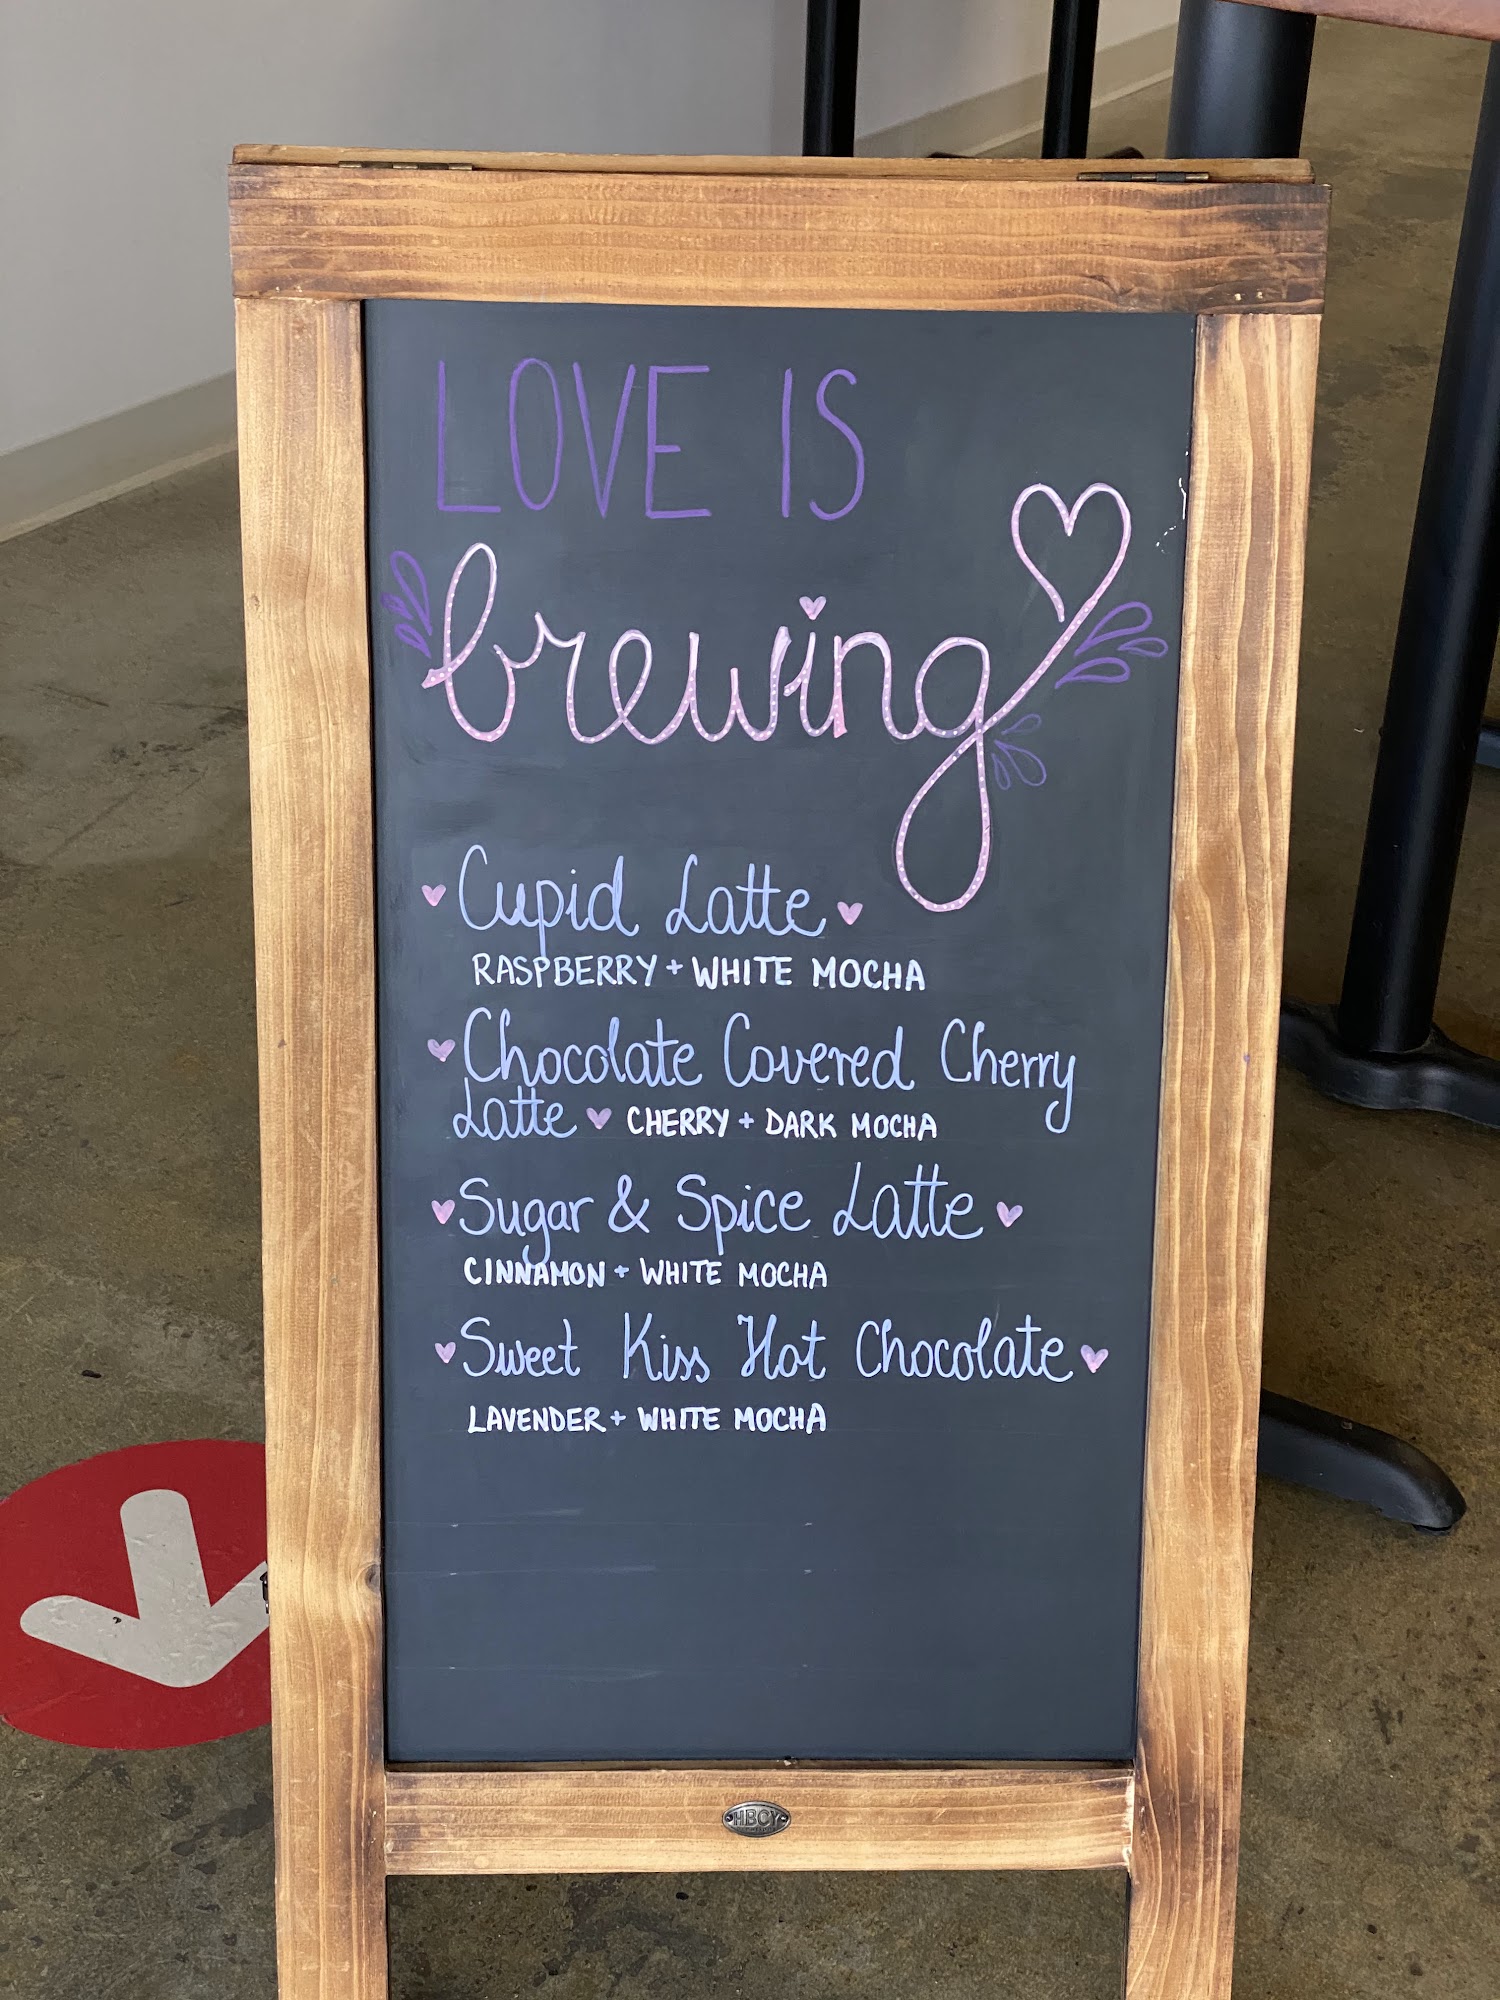 LOVE IS
brewing
Cupid Latte
RASPBERRY + WHITE MOCHA
Chocolate Covered Cherry
Latte CHERRY + DARK MOCHA
Sugar & Spice Latte
CINNAMON + WHITE MOCHA
Sweet Kiss Hot Chocolate
LAVENDER + WHITE MOCHA
HBCY